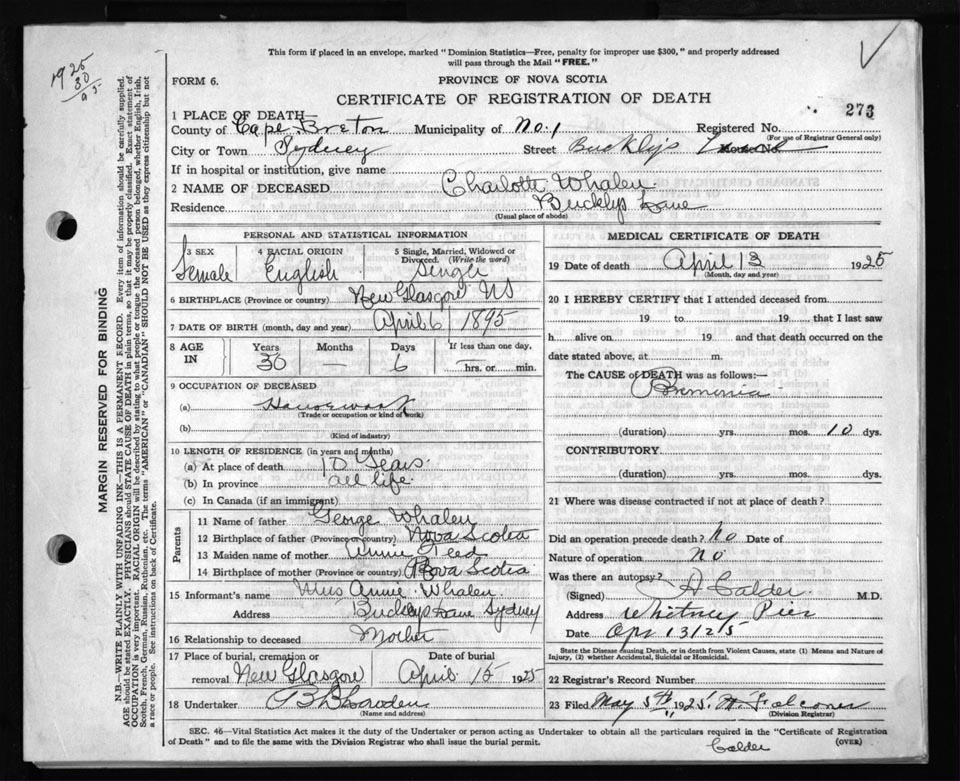 This form if placed in an envelope, marked "Dominion Statistics—Free, penalty for improper use $300," and properly addressed
will pass through the Mail "FREE."
1925
30
95
FORM 6.
PROVINCE OF NOVA SCOTIA
CERTIFICATE OF REGISTRATION OF DEATH
273
1 PLACE OF DEATH
County of Cape Breton Municipality of No. 1 Registered No.
(For use of Registrar General only)
City or Town Sydney Street Bucklys House No.
If in hospital or institution, give name
2 NAME OF DECEASED Charlotte Whalen
Residence Bucklys Lane
(Usual place of abode)
PERSONAL AND STATISTICAL INFORMATION
3 SEX 4 RACIAL ORIGIN 5 Single, Married, Widowed or Divorced. (Write the word)
Female English Single
6 BIRTHPLACE (Province or country) New Glasgow NS
7 DATE OF BIRTH (month, day and year) April 6 1895
8 AGE IN Years Months Days If less than one day,
30 — 6 — hrs. or min.
9 OCCUPATION OF DECEASED
(a) Housework
(Trade or occupation or kind of work)
(b)
(Kind of industry)
10 LENGTH OF RESIDENCE (in years and months)
(a) At place of death 10 Years
(b) In province all life
(c) In Canada (if an immigrant)
Parents
11 Name of father George Whalen
12 Birthplace of father (Province or country) Nova Scotia
13 Maiden name of mother Annie Reed
14 Birthplace of mother (Province or country) Nova Scotia
15 Informant's name Mrs Annie Whalen
Address Bucklys Lane Sydney
16 Relationship to deceased Mother
17 Place of burial, cremation or removal New Glasgow
Date of burial April 15 1925
18 Undertaker
(Name and address)
MEDICAL CERTIFICATE OF DEATH
19 Date of death April 13 1925
(Month, day and year)
20 I HEREBY CERTIFY that I attended deceased from
19 to 19 that I last saw
h alive on 19 and that death occurred on the
date stated above, at m.
The CAUSE of DEATH was as follows:
Pnemonia
(duration) yrs. mos. 10 dys.
CONTRIBUTORY
(duration) yrs. mos. dys.
21 Where was disease contracted if not at place of death?
Did an operation precede death? No Date of
Nature of operation No
Was there an autopsy?
(Signed) A Calder M.D.
Address Whitney Pier
Date Apr 13/25
State the Disease causing Death, or in death from Violent Causes, state (1) Means and Nature of
Injury, (2) whether Accidental, Suicidal or Homicidal.
22 Registrar's Record Number
23 Filed May 5th 1925 Falconer
(Division Registrar)
SEC. 46—Vital Statistics Act makes it the duty of the Undertaker or person acting as Undertaker to obtain all the particulars required in the "Certificate of Registration
of Death" and to file the same with the Division Registrar who shall issue the burial permit.
Calder
(OVER)
MARGIN RESERVED FOR BINDING
N.B.—WRITE PLAINLY WITH UNFADING INK—THIS IS A PERMANENT RECORD. Every item of information should be carefully supplied.
AGE should be stated EXACTLY. PHYSICIANS should STATE CAUSE OF DEATH in plain terms, so that it may be properly classified. Exact statement of
OCCUPATION is very important. RACIAL ORIGIN will be described by stating to what people or tongue the deceased person belonged, whether English, Irish,
Scotch, French, German, Russian, Ruthenian, etc. The terms "AMERICAN" or "CANADIAN" SHOULD NOT BE USED as they express citizenship but not
a race or people. See instructions on back of Certificate.